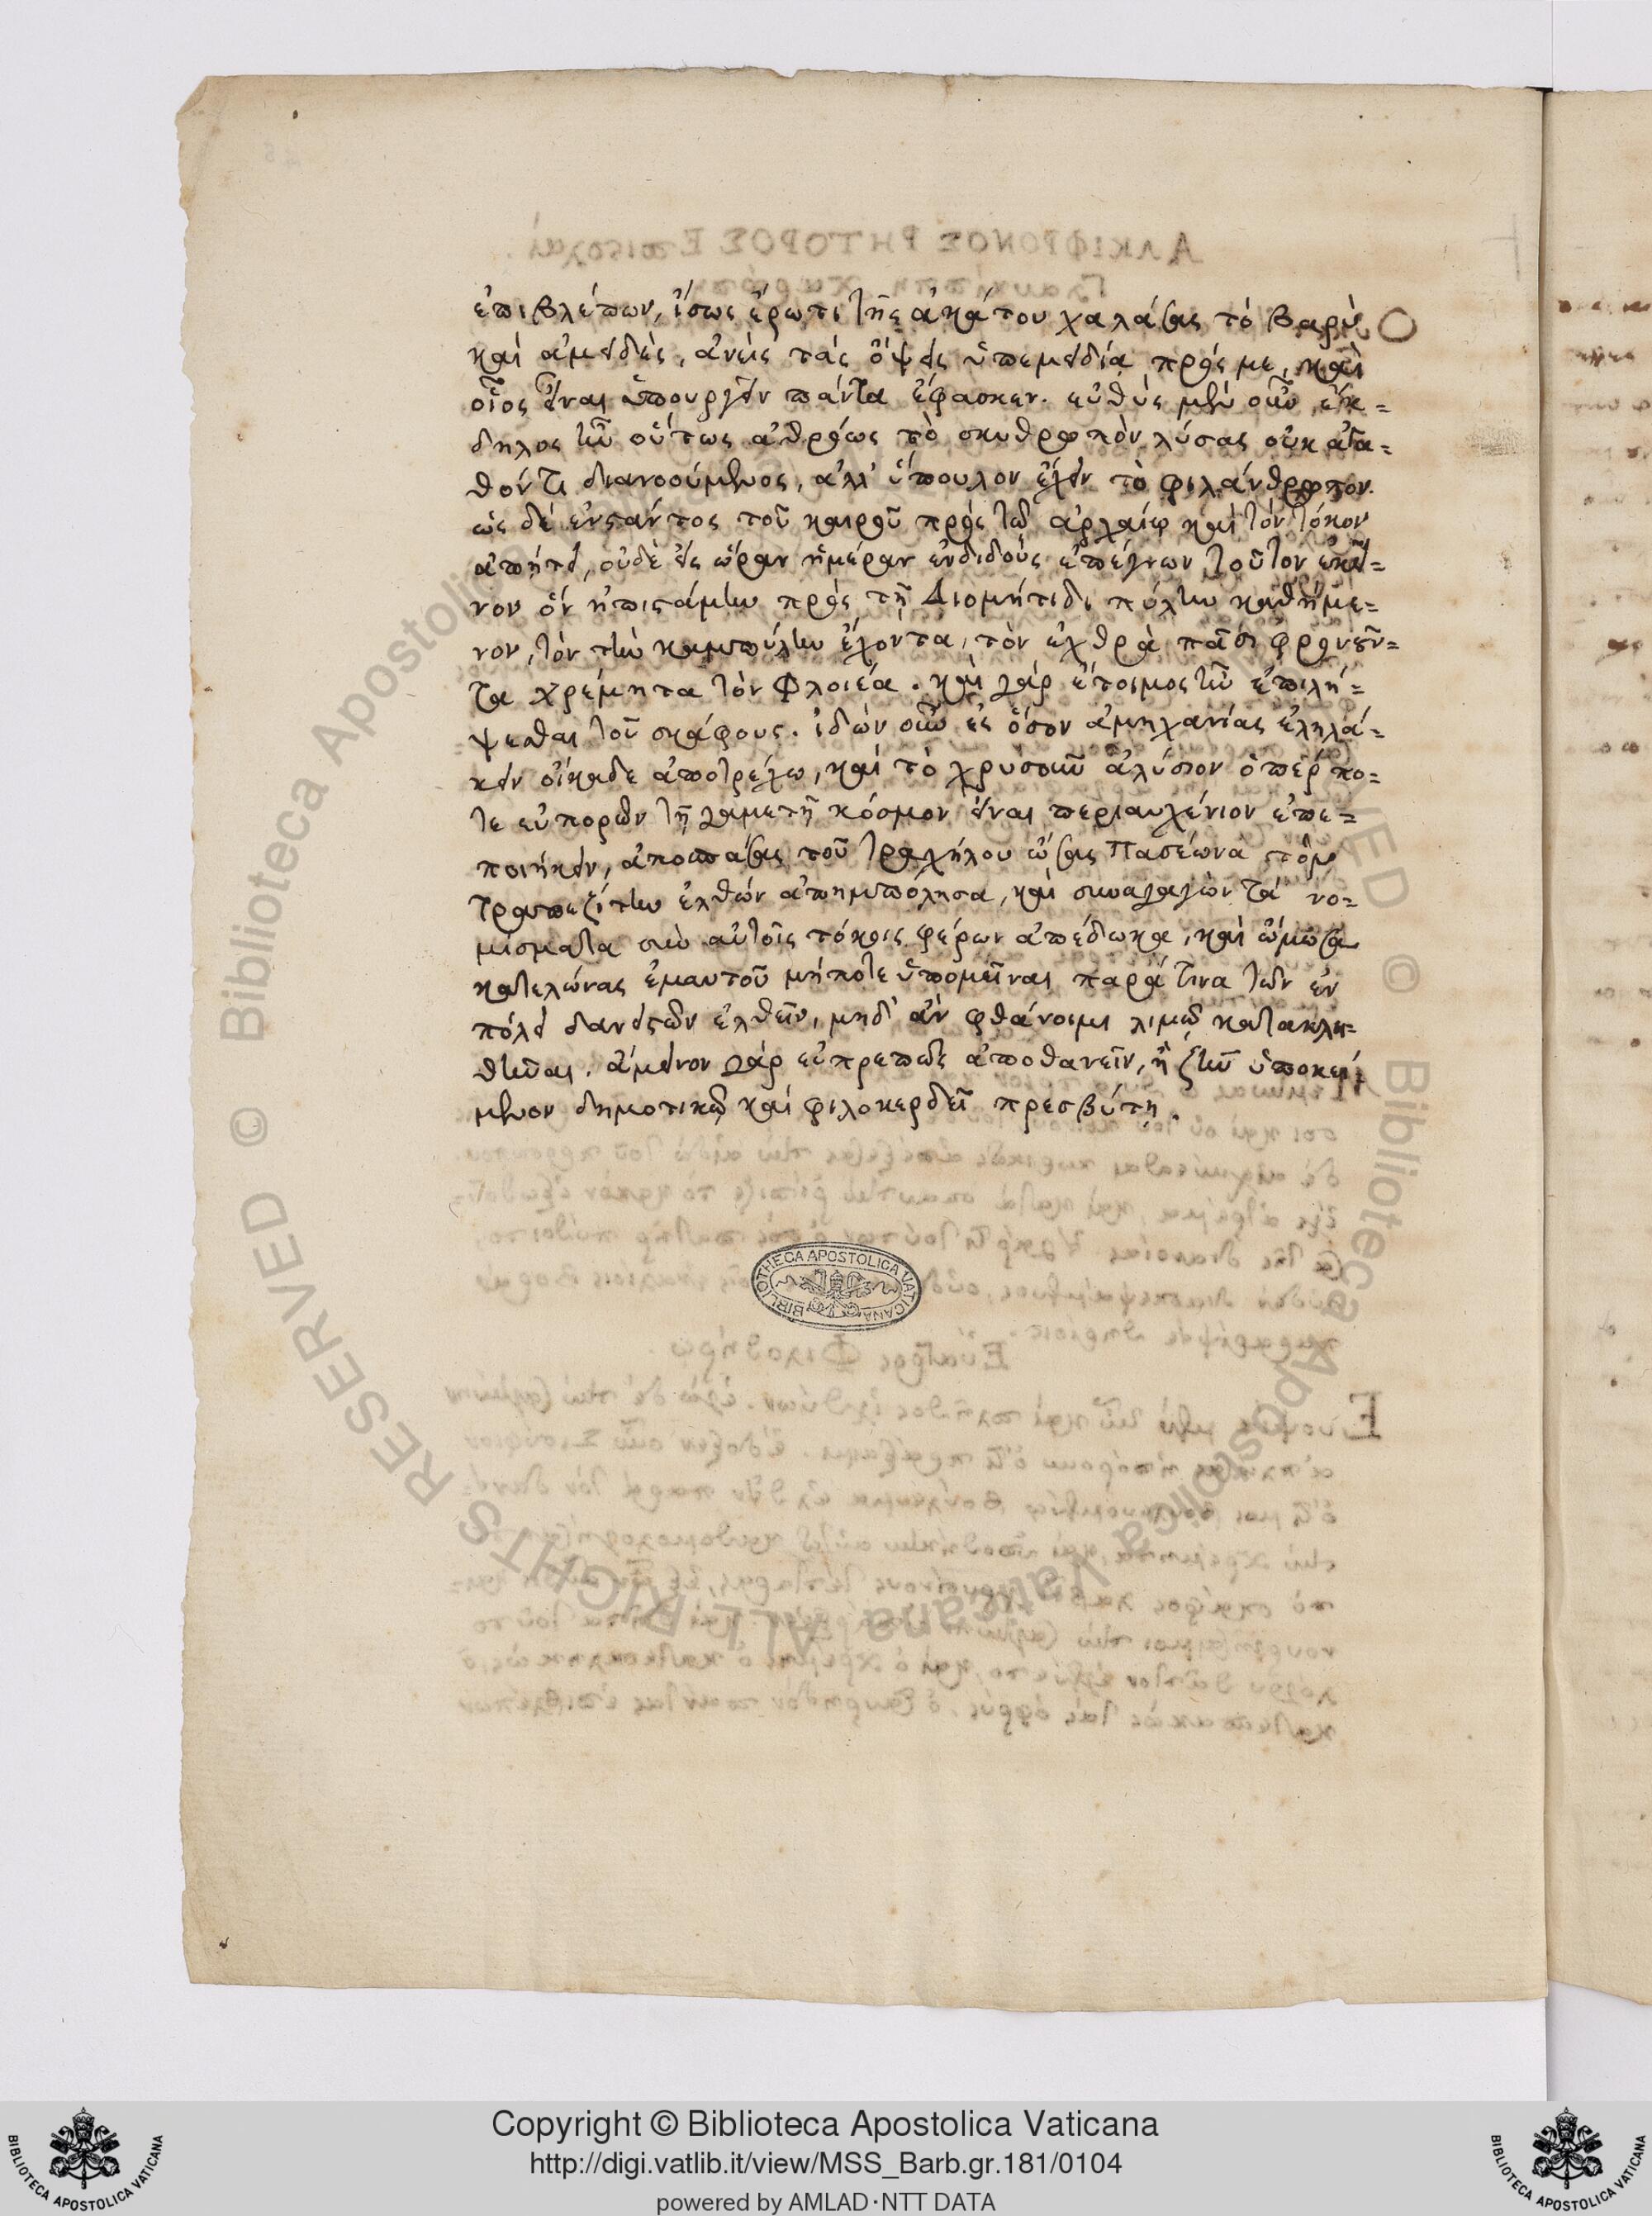 ἐπιβλέπων, ἴσως ἔρωτι τῆς ἀκάτου χαλάσας τὸ βαρὺ
καὶ ἀμειδὲς, ἀνεὶς τὰς ὄψεις ὑπεμειδία πρός με, καὶ
οἷος εἶναι ὑπουργεῖν πάντα ἔφασκεν. εὐθὺς μὲν οὖν ἔκ=
δηλος ἦν οὕτως ἀθρόως τὸ σκυθρωπὸν λύσας οὐκ ἀγα=
θόν τι διανοούμενος, ἀλλ' ὕπουλον ἔχειν τὸ φιλάνθρωπον.
ὡς δὲ ἐνστάντος τοῦ καιροῦ πρὸς τῷ ἀρχαίῳ καὶ τὸν τόκον
ἀπῄτει, οὐδὲ εἰς ὥραν ἡμέραν ἐνδιδοὺς ἐπέγνων τοῦτον ἐκεῖ=
νον ὃν ἠπιστάμην πρὸς τῇ Διομήτιδι πύλην καθήμε=
νον, τὸν τὴν καμπύλην ἔχοντα, τὸν ἐχθρὰ πᾶσι φρονοῦν=
τα χρέμητα τὸν Φλοιέα. καὶ γὰρ ἕτοιμος ἦν ἐπιλή=
ψεσθαι τοῦ σκάφους. ἰδὼν οὖν ἐς ὅσον ἀμηχανίας ἐληλά=
κειν οἴκαδε ἀποτρέχω, καὶ τὸ χρυσοῦν ἀλύσιον ὅπερ πο=
τε εὐπορῶν τῇ γαμετῇ κόσμον εἶναι περιαυχένιον ἐπε=
ποιήκειν, ἀποσπάσας τοῦ τραχήλου ὡς Πασέωνα τὸν
τραπεζίτην ἐλθὼν ἀπημπόλησα, καὶ συναγαγὼν τὰ νο=
μίσματα σὺν αὐτοῖς τόκοις φέρων ἀπέδωκα, καὶ ὤμοσα
κατελώνας ἐμαυτοῦ μήποτε ὑπομεῖναι παρά τινα τῶν ἐν
πόλει δανειστῶν ἐλθεῖν, μηδ' ἂν φθάνοιμι λιμῷ κατακλι=
θῆναι. ἄμεινον γὰρ εὐπρεπῶς ἀποθανεῖν, ἢ ζῆν ὑποκεί=
μενον δημοτικῷ καὶ φιλοκερδεῖ πρεσβύτῃ.
BIBLIOTHECA APOSTOLICA VATICANA
© Biblioteca Apostolica Vaticana ALL RIGHTS RESERVED
Copyright © Biblioteca Apostolica Vaticana
http://digi.vatlib.it/view/MSS_Barb.gr.181/0104
powered by AMLAD·NTT DATA
BIBLIOTECA APOSTOLICA VATICANA
BIBLIOTECA APOSTOLICA VATICANA